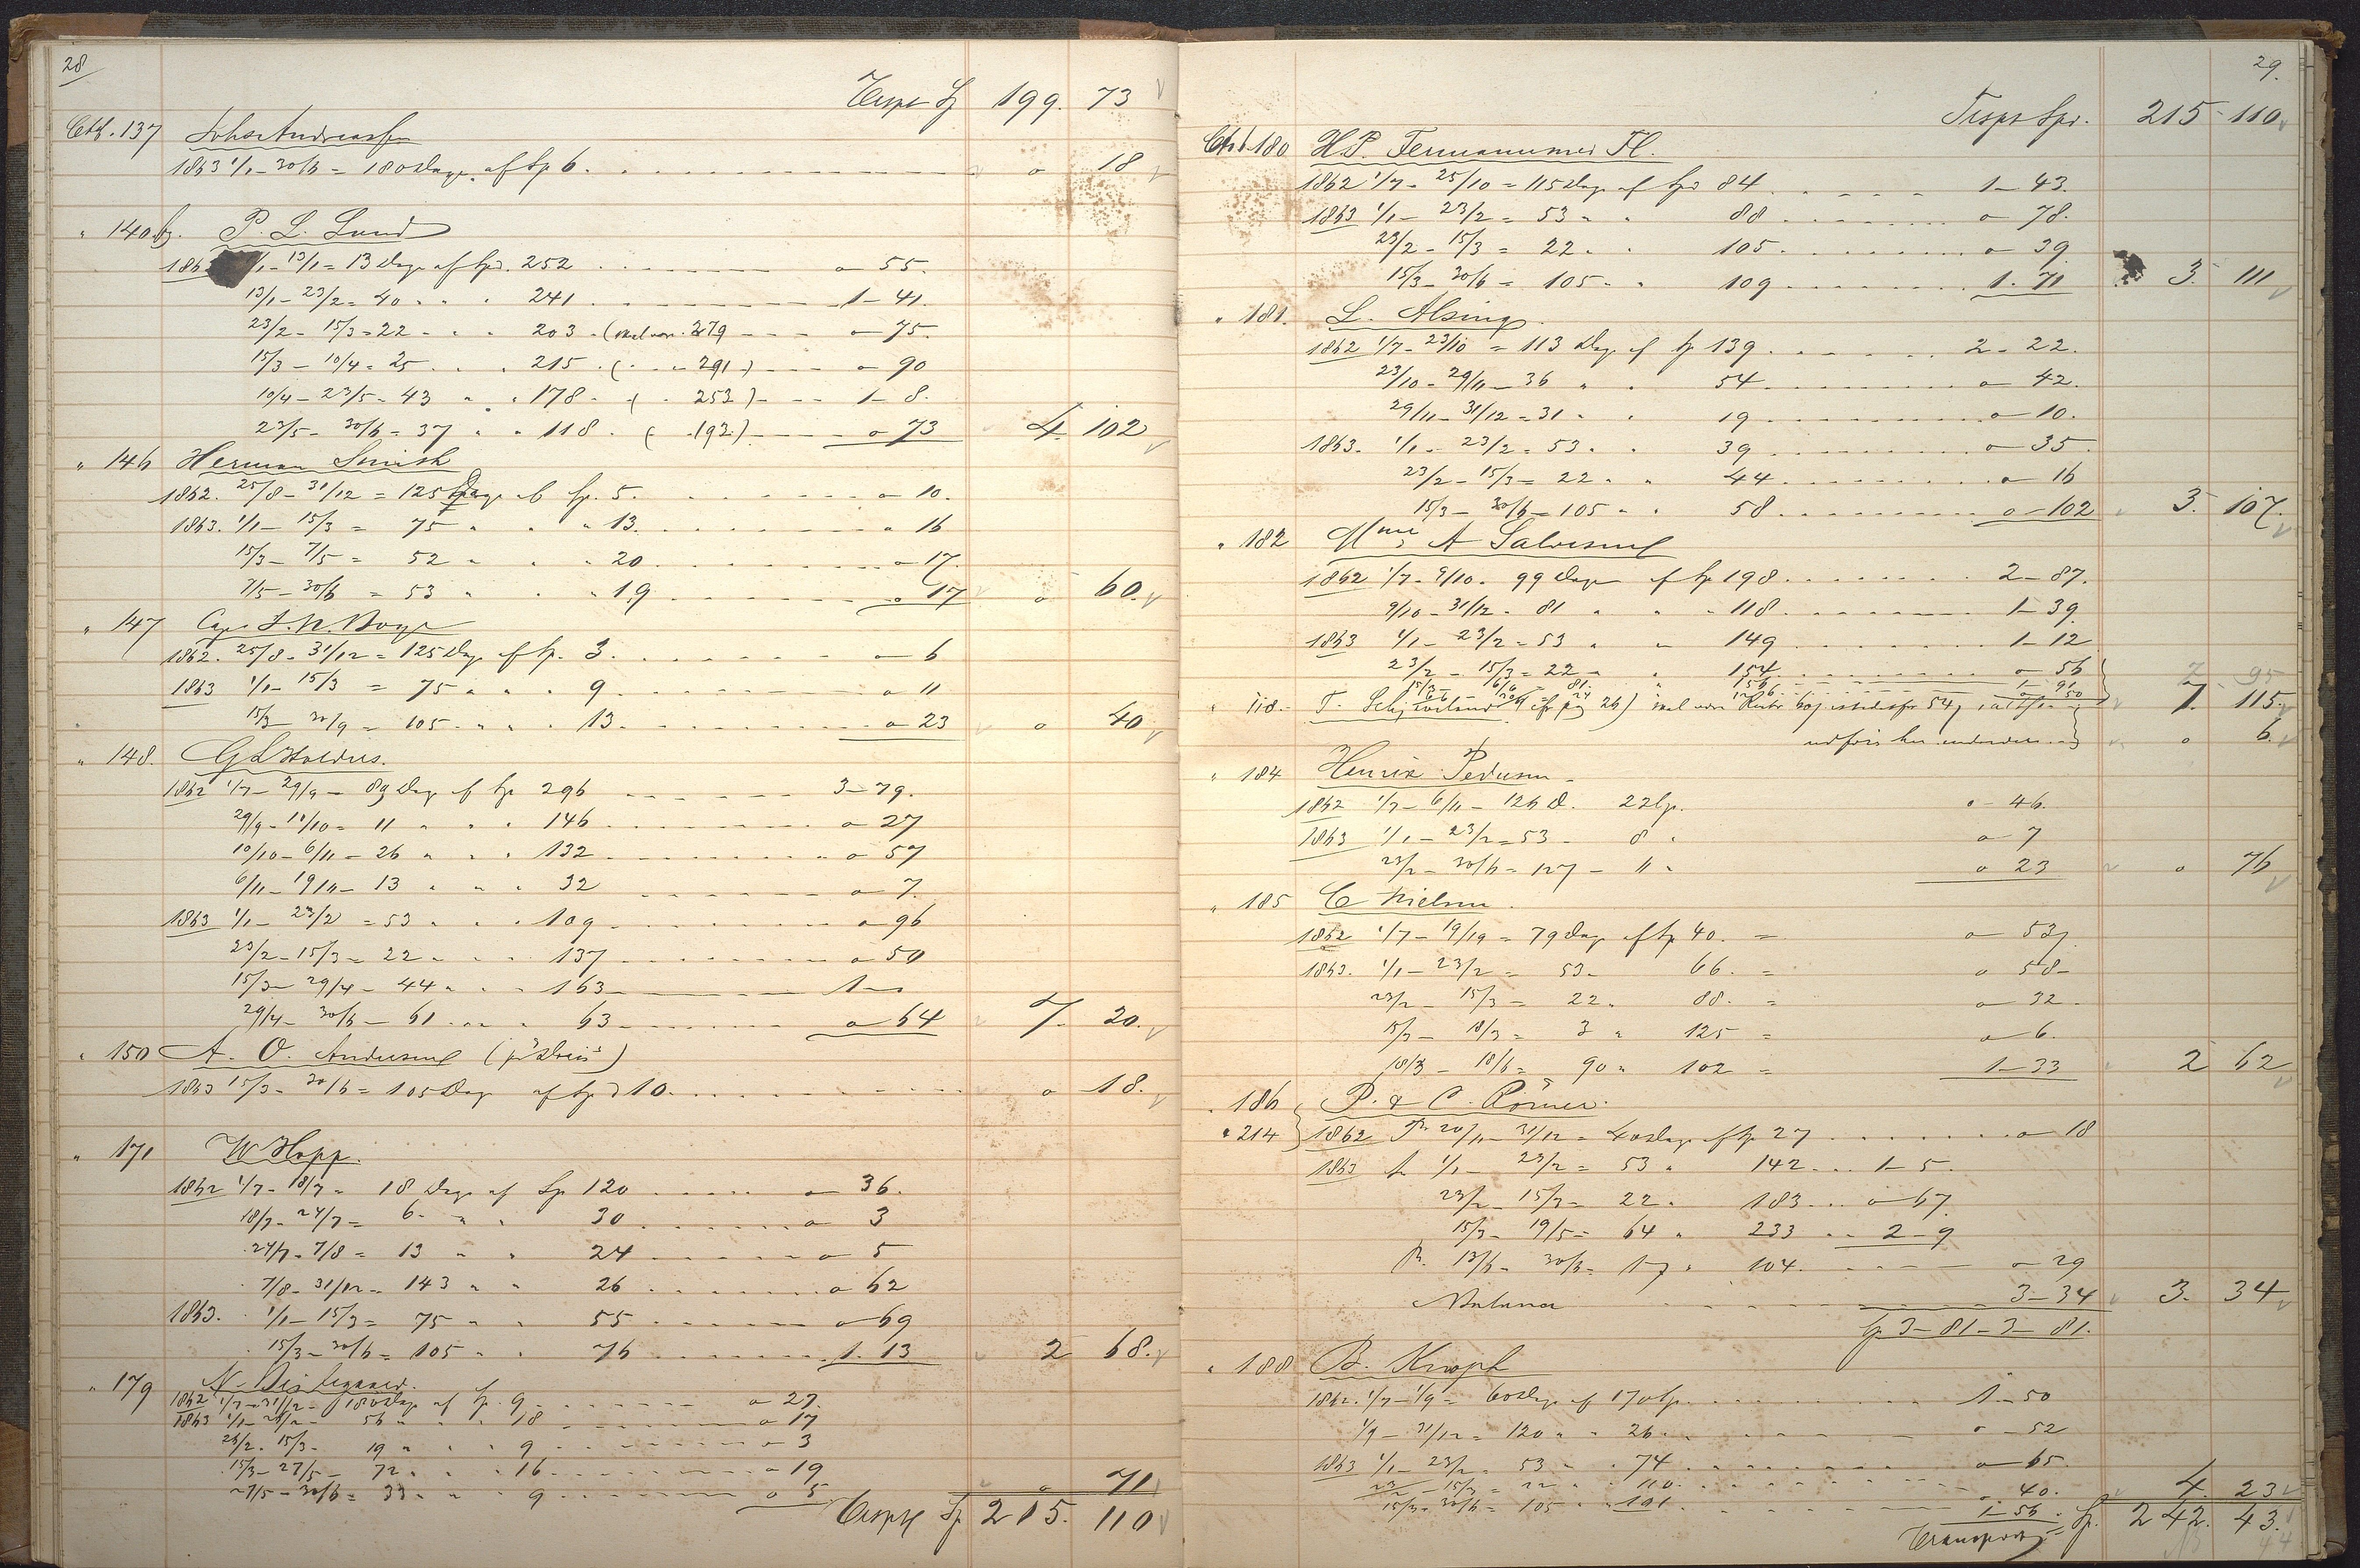 28
Trspt Sp 199. 73
Ctb. 137 Johs Andreassen
1863 1/1 - 30/6 = 180 Dage af Sp 6. o 18
" 140 P. L. Lund
186 1/1 - 13/1 = 13 Dage af Spd. 252 o - 55.
13/1 - 23/2 = 40 " " 241 1 - 41.
23/2 - 15/3 = 22 " " 203 - (skal være 279 o - 75.
15/3 - 10/4 = 25 " " 215 - ( " - 291 -) o - 90
10/4 - 23/5 = 43 " " 178 - ( " 253) 1 - 8.
23/5 - 30/6 = 37 " " 118 - ( - 192.) o - 73 4. 102
" 146 Herman Smith
1862. 25/8 - 31/12 = 125 Dage af Sp. 5. o - 10.
1863. 1/1 - 15/3 = 75 " " " 13. o 16
15/3 - 7/5 = 52 " " " 20 o - 17.
7/5 - 30/6 = 53 " " " 19 o 17 o 60.
" 147 Cap
1862. 25/8 - 31/12 = 125 Dage af Sp. 3. o - 6
1863 1/1 - 15/3 = 75 " " " 9 o 11
15/3 - 30/9 = 105 " " " 13. o 23 o 40
" 148.
1862 1/7 - 29/9 = 89 Dage af Sp 296 3 - 79.
29/9 - 10/10 = 11 " " " 146 o - 27
10/10 - 6/11 = 26 " " " 132 o 57
6/11 - 19/11 - 13 " " " 32 o - 7.
1863 1/1 - 23/2 = 53 " " " 109 o - 96
23/2 - 15/3 = 22 " " " 137 o - 50
15/3 - 29/4 - 44 " " " 163 1 - o
29/4 - 30/6 - 61 " " " 63 o 64 7. 20.
" 150 A. O. Andersen
1863 15/3 - 30/6 = 105 Dage af Spd 10. o 18.
" 171 W Hopp.
1862 1/7 - 18/7 = 18 Dage af Sp 120 o 36.
18/7 - 24/7 = 6 " " 30 o 3
24/7 - 7/8 = 13 " " 24 o 5
7/8 - 31/12 = 143 " " 26 o 62
1863. 1/1 - 15/3 = 75 " " 55 o - 69
15/3 - 30/6 = 105 " " 76 1. 13 2 68.
" 179
1862 1/7 - 31/12 - 180 Dage af Sp. 9 o 27.
1863 1/1 - 26/2 - 56 " " " 18 o 17
26/2 - 15/3 - 19 " " " 9 o 3
15/3 - 27/5 - 72 " " " 16 o 19
27/5 - 30/6 = 33 " " " 9 o 5 o 71
Trspt Sp 215. 110
29.
Trspt Spd. 215 - 110
Ctb 180 H. P.
1862 1/7 - 25/10 = 115 Dage af Spd 84 1 - 43.
1863 1/1 - 23/2 = 53 " " 88 o - 78.
23/2 - 15/3 = 22 " " 105 o - 39
15/3 - 30/6 = 105 " " 109 1. 71 3. 111
" 181. L. Alsing
1862 1/7 - 23/10 = 113 Dage af Sp 139 2 - 22.
23/10 - 29/11 - 36 " " 54 o - 42.
29/11 - 31/12 = 31 " " 19 o - 10.
1863. 1/1 - 23/2 = 53 " " 39 o - 35
23/2 - 15/3 = 22 " " 44 o 16
15/3 - 30/6 - 105 " " 58 o - 102 3. 107.
" 182 A Salvesen
1862 1/7 - 9/10 - 99 Dage af Sp 198 2 - 87.
9/10 - 31/12 - 81 " " 118 1 - 39
1863 1/1 - 23/2 = 53 " " 149 1 - 12
23/2 - 15/3 = 22 " " 154 o - 56 7 95
15/3 - 6/6 = 81 " 156 1 - 91
" 118. T. (cfr pag 26) skal være 7. 115.
udføres her o 6.
" 184 Henrik Pedersen
1862 1/7 - 6/11 - 126 D. 22 Sp. o - 46.
1863 1/1 - 23/2 = 53 - 8 " o - 7
23/2 - 30/6 = 127 - 11 " o 23 o 76
" 185 C Nielsen
1862 1/7 - 19/19 = 79 Dage af Sp 40. = o - 53.
1863. 1/1 - 23/2 = 53 - 66. = o 58 -
23/2 - 15/3 = 22 " 88. = o - 32.
15/3 - 18/3 = 3 " 125 = o - 6.
18/3 - 18/6 = 90 " 102 = 1 - 33 2 62
" 186 P. & C. Römer.
" 214 1862 20/11 - 31/12 = 40 Dage af Sp 27 o - 18
1863 1/1 - 23/2 = 53 " 142 1 - 5.
23/2 - 15/3 = 22 " 183 o - 67
15/3 - 19/5 = 64 " 233 2 - 9
13/6 - 30/6 = 17 " 104. o - 29
Balance 3 - 34 3. 34
Sp 3 - 81 - 3 - 81.
" 188 B. Knoph
1862. 1/7 - 1/9 = 60 Dage af 170 Sp. 1 - 50
1/9 - 31/12 = 120 " " 26 o - 52
1863 1/1 - 23/2 = 53 " " 74 o - 65
23/2 - 15/3 = 22 " " 110. o 40.
15/3 - 30/6 = 105 " " 101. 1 - 56. 4. 23
Transport Sp. 242. 43.
44